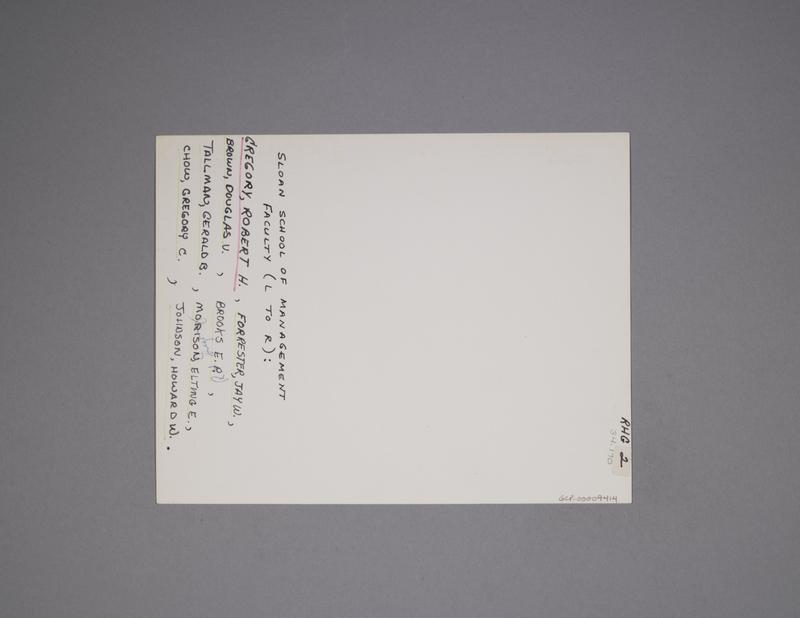 SLOAN SCHOOL OF MANAGEMENT
FACULTY (L TO R):
GREGORY, ROBERT H. , FORRESTER, JAY W.,
BROWN, DOUGLAS V. , BROOKS E.P. ,
TALLMAN, GERALD B. , MORISON, ELTING E.,
CHOW, GREGORY C. , JOHNSON, HOWARD W. .
RHG 2
34.170
GCP-00009414